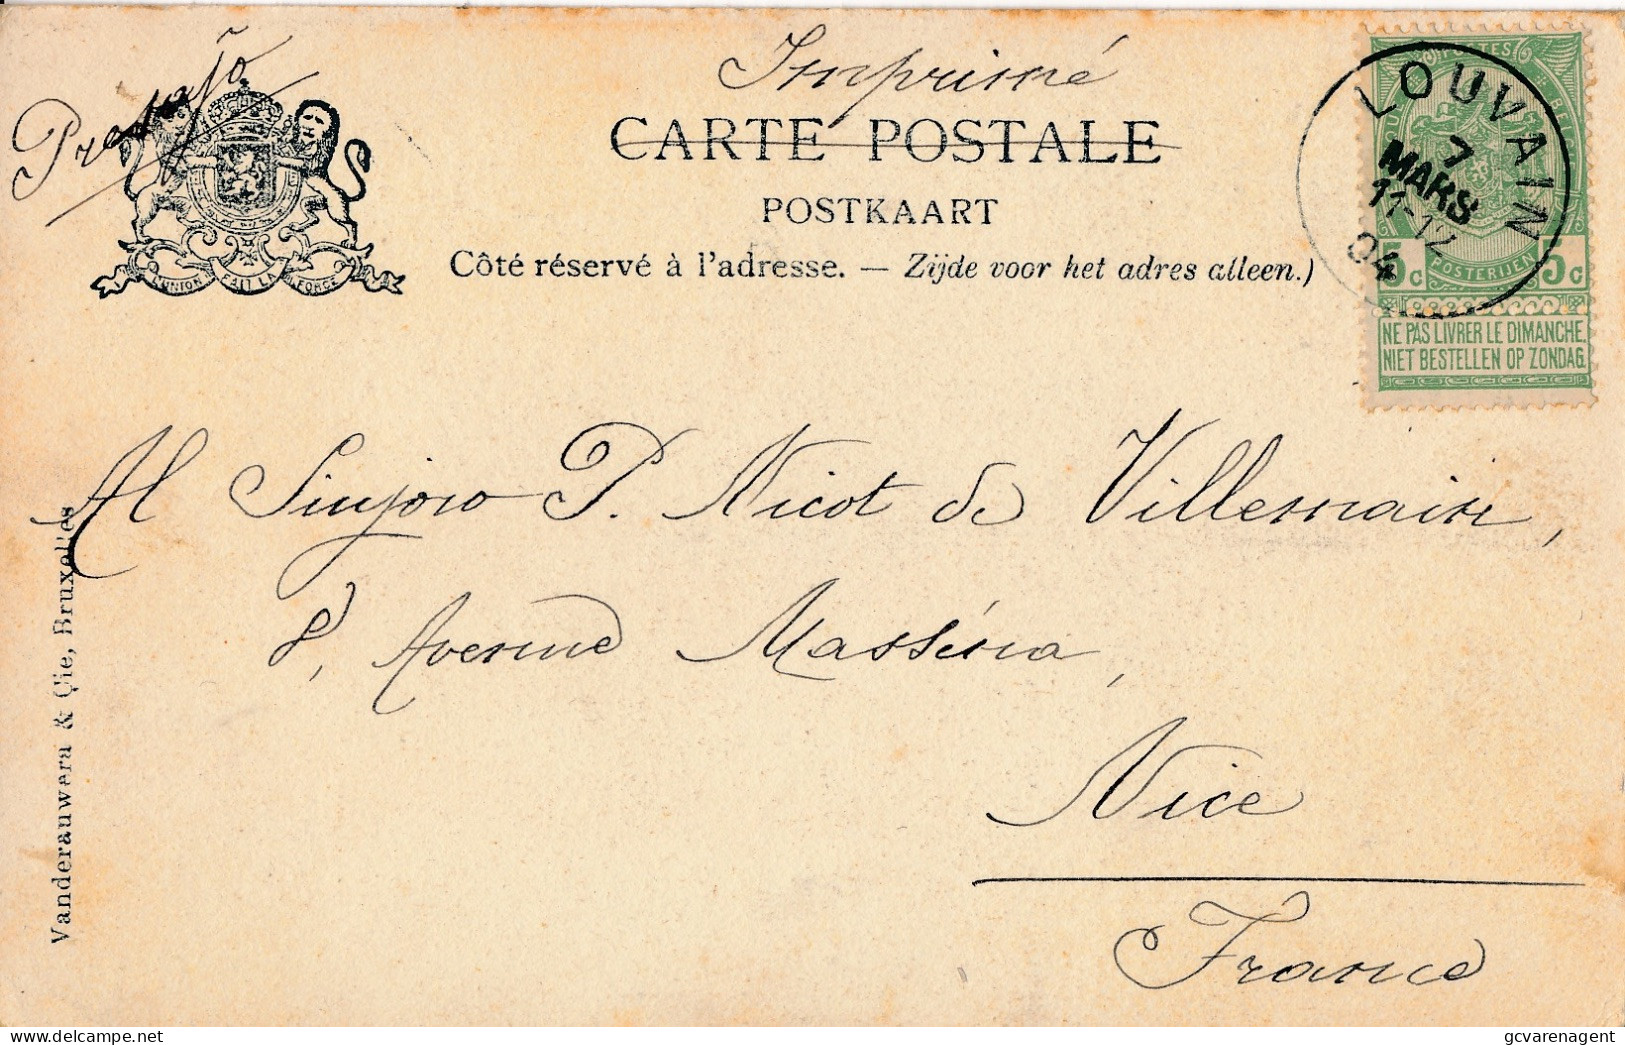 Imprimé
CARTE POSTALE
POSTKAART
Côté réservé à l'adresse. — Zijde voor het adres alleen.)
L'UNION FAIT LA FORCE
LOUVAIN
7
MARS
11-12
04
POSTERIJEN
5c 5c
NE PAS LIVRER LE DIMANCHE.
NIET BESTELLEN OP ZONDAG.
Al Sinjoro P. Nicot de Villemain,
8, Avenue Masséna,
Nice
France
Vanderauwera & Cie, Bruxelles
delcampe.net
gcvarenagent